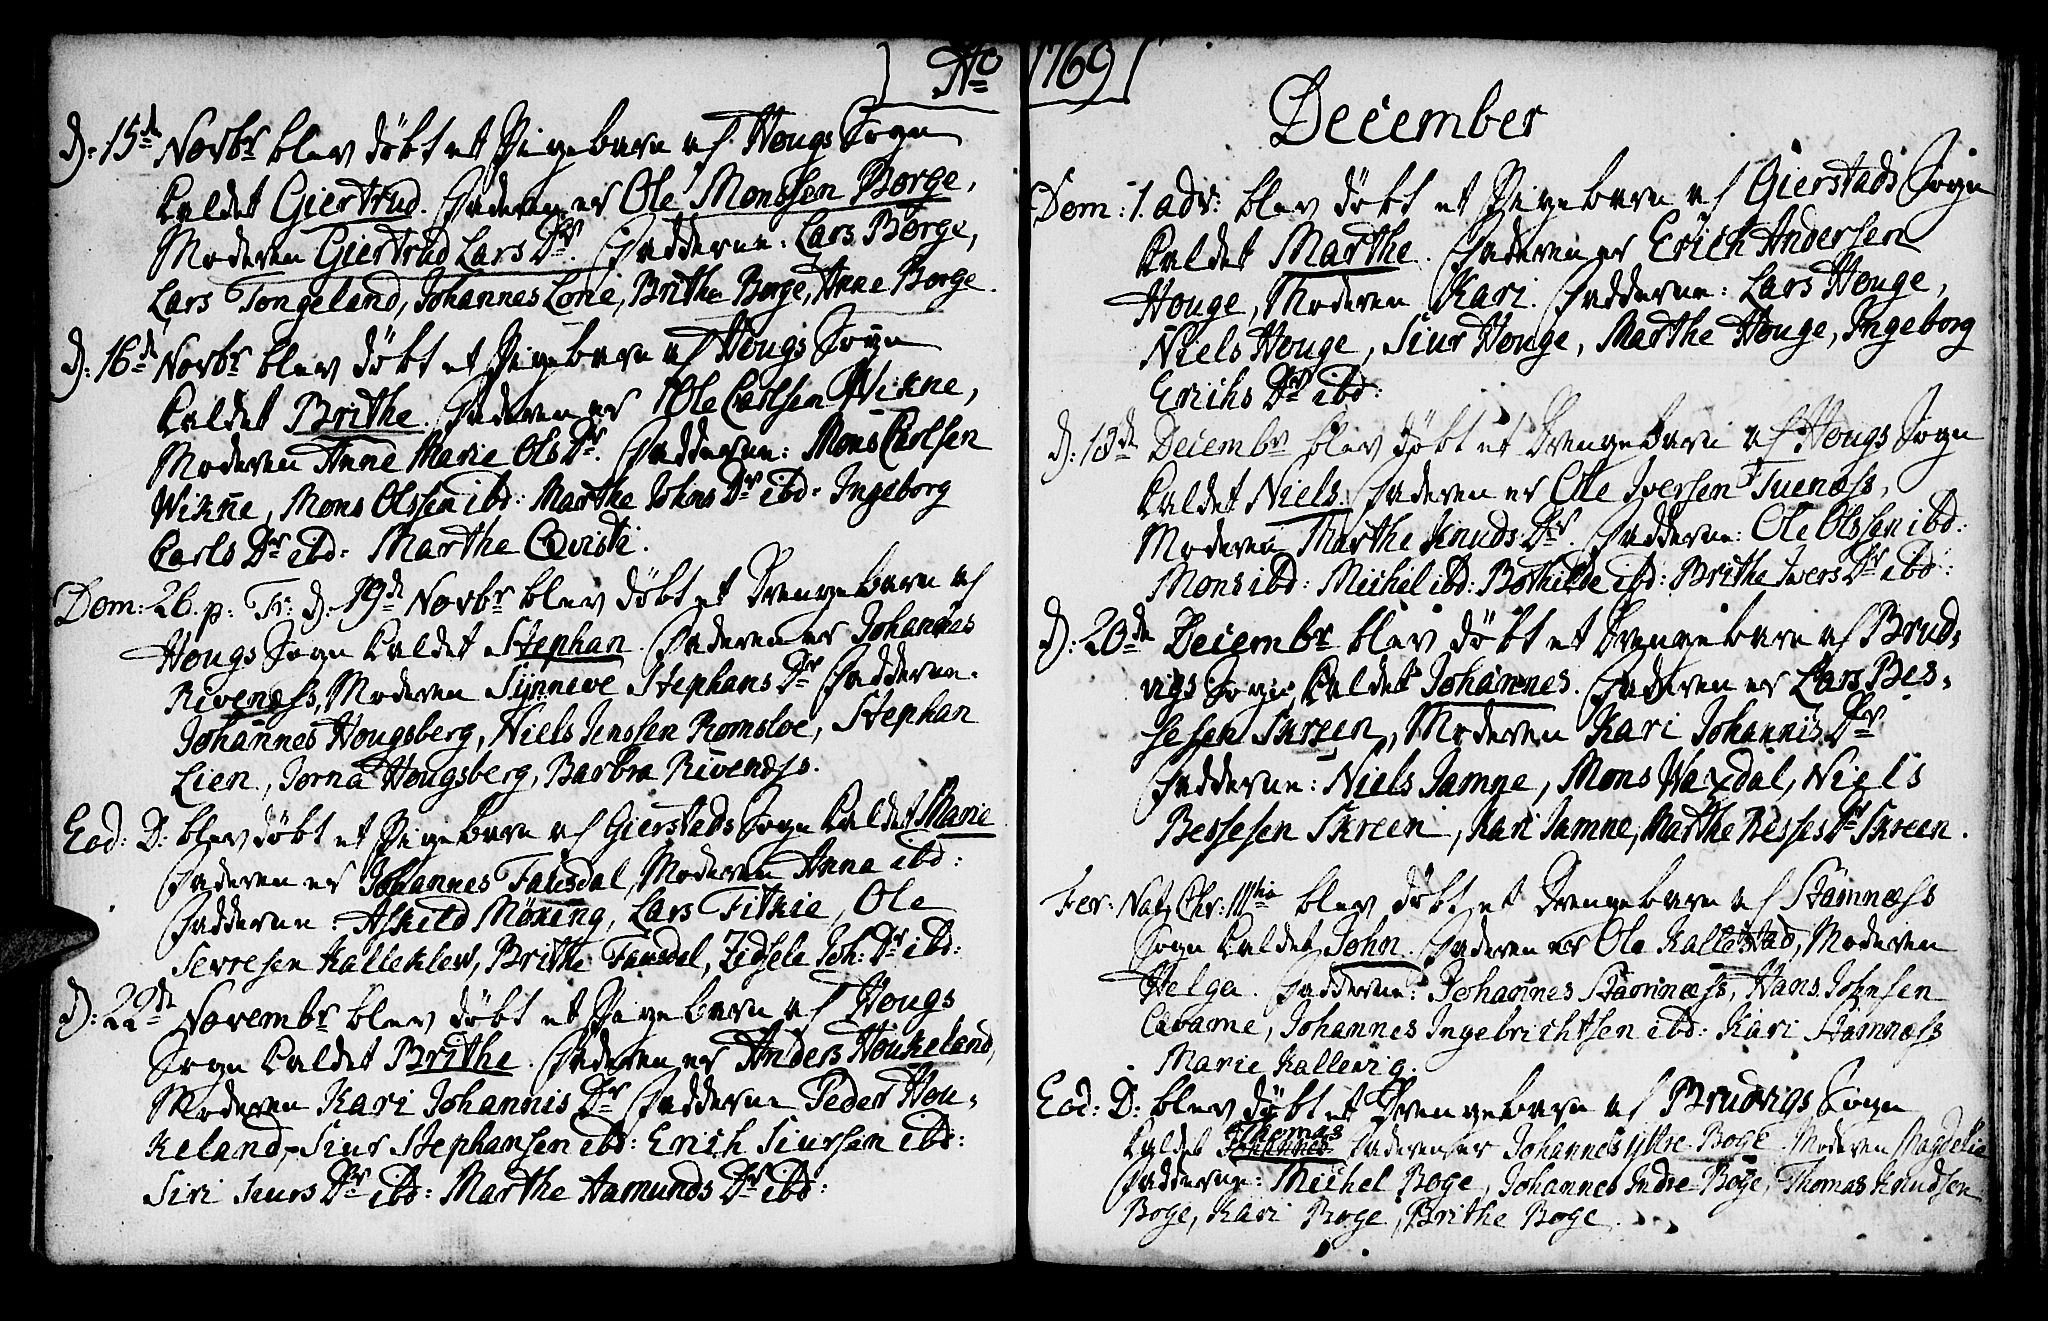 Ao 1769
D: 15de Novbr blev døbt et Pigebarn af Hougs Sogn
kaldet Giertrud. Faderen er Ole Monssen Borge,
Moderen Giertrud Lars Dr. Fadderne: Lars Borge,
Lars Tongeland, Johannes Lone, Brithe Borge, Anne Borge.
D: 16de Novbr blev døbt et Pigebarn af Hougs Sogn
kaldet Brithe. Faderen er Ole Carlsen Wikne,
Moderen Anne Marie Ols Dr. Fadderne: Mons Carlsen
Wikne, Mons Olssen ibd: Marthe Johns Dr ibd: Ingeborg
Carls Dr ibd: Marthe Qvisti.
Dom: 26. p: Tr: d. 19de Novbr blev døbt et Drengebarn af
Hougs Sogn kaldet Stephan. Faderen er Johannes
Rivenæss, Moderen Synneve Stephans Dr Fadderne.
Johannes Hougsberg, Niels Jenssen Romsloe, Stephan
Lien, Jorna Hougsberg, Barbra Rivenæss.
Eod: D: blev døbt et Pigebarn af Gierstads Sogn kaldet Marie
Faderen er Johannes Fausdal, Moderen Anna ibd:
Fadderne: Askild Møking, Lars Titkie, Ole
Sevresen Kalleklev, Brithe Fausdal, Zidsele Joh: Dr ibd:
D: 22de Novembr blev døbt et Pigebarn af Hougs
Sogn kaldet Brithe. Faderen er Anders Houkeland,
Moderen Kari Johannis Dr Fadderne Peder Hou-
keland, Siur Stephansen ibd: Erich Siursen ibd:
Siri Siurs Dr ibd: Marthe Aamunds Dr ibd:
December
Dom: 1. adv: blev døbt et Pigebarn af Gierstads Sogn
kaldet Marthe. Faderen er Erich Andersen
Houge, Moderen Kari. Fadderne: Lars Houge,
Niels Houge, Siur Houge, Marthe Houge, Ingeborg
Erichs Dr ibd:
D: 13de Decembr blev døbt et Drengebarn af Hougs Sogn
kaldet Niels. Faderen er Ole Iversen Tuenæss,
Moderen Marthe Knuds Dr. Fadderne: Ole Olssen ibd:
Mons ibd: Michel ibd: Bothilde ibd: Brithe Ivers Dr ibd:
D: 20de Decembr blev døbt et Drengebarn af Brud-
vigs Sogn, kaldet Johannes. Faderen er Lars Bes-
sesen Skreen, Moderen Kari Johannis Dr
Fadderne: Niels Jamne, Mons Waxdal, Niels
Bessesen Skreen, Kari Jamne, Marthe Besses Dr Skreen.
Fer: Nat: Chr: IIItia blev døbt et Drengebarn af Stamnæss
Sogn kaldet John. Faderen er Ole Kallestad, Moderen
Helga. Fadderne: Johannes Stamnæss, Hans Johnsen
Johannes Ingebrichtsen ibd: Kari Stamnæss
Marie Kallevig.
Eod: D: blev døbt et Drengebarn af Brudvigs Sogn
kaldet Thomas Faderen er Johannes ystre Boge. Moderen
Fadderne: Michel Boge, Johannes Indre Boge, Thomas Knudsen
Boge, Kari Boge, Brithe Boge.